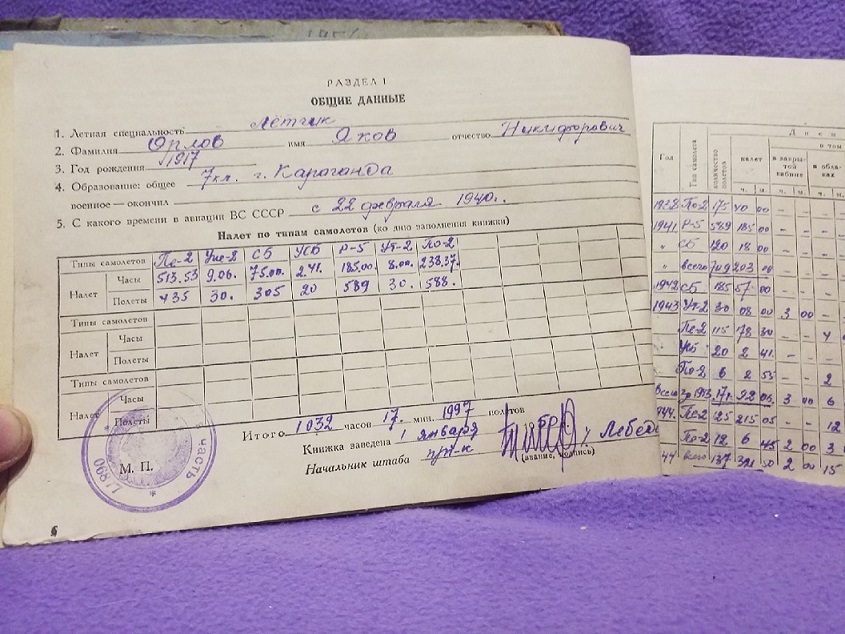 РАЗДЕЛ I
ОБЩИЕ ДАННЫЕ
1. Летная специальность Лётчик
2. Фамилия Орлов имя Яков отчество Никифорович
3. Год рождения 1917
4. Образование: общее 7кл. г. Караганда
военное — окончил
5. С какого времени в авиации ВС СССР с 22 февраля 1940г.
Налет по типам самолетов (ко дню заполнения книжки)
Типы самолетов Пе-2 Упе-2 СБ УСБ Р-5 Ут-2 По-2
Налет Часы 513.53 9.06. 75.00. 2.41. 185.00. 8.00. 238.37.
Полеты 435 30. 305 20 589 30. 588.
Типы самолетов
Налет Часы
Полеты
Типы самолетов
Налет Часы
Полеты
Итого 1032 часов 17 мин. 1997 полетов
Книжка заведена 1 января
Начальник штаба
(звание, подпись)
М. П.
часть
06877
6
Год Тип самолета количество полетов налет в закрытой кабине в обла-
ках
ч. м. ч. м. ч.
1938 По-2 175 40 00 – – –
1941 Р-5 589 185 00 – – –
" СБ 120 18 00 – – –
" всего 709 203 00 – – –
1942 СБ 185 57 00 – – –
1943 Ут-2 30 08 00 3 00 –
Пе-2 115 78 30 – – 4
Усб 20 2 41 – – –
По-2 6 2 55 – – 2
3 00 6
1944 Пе-2 125 215 05 – – 12
По-2 12 6 45 2 00 3
44 всего 137 2 00 15